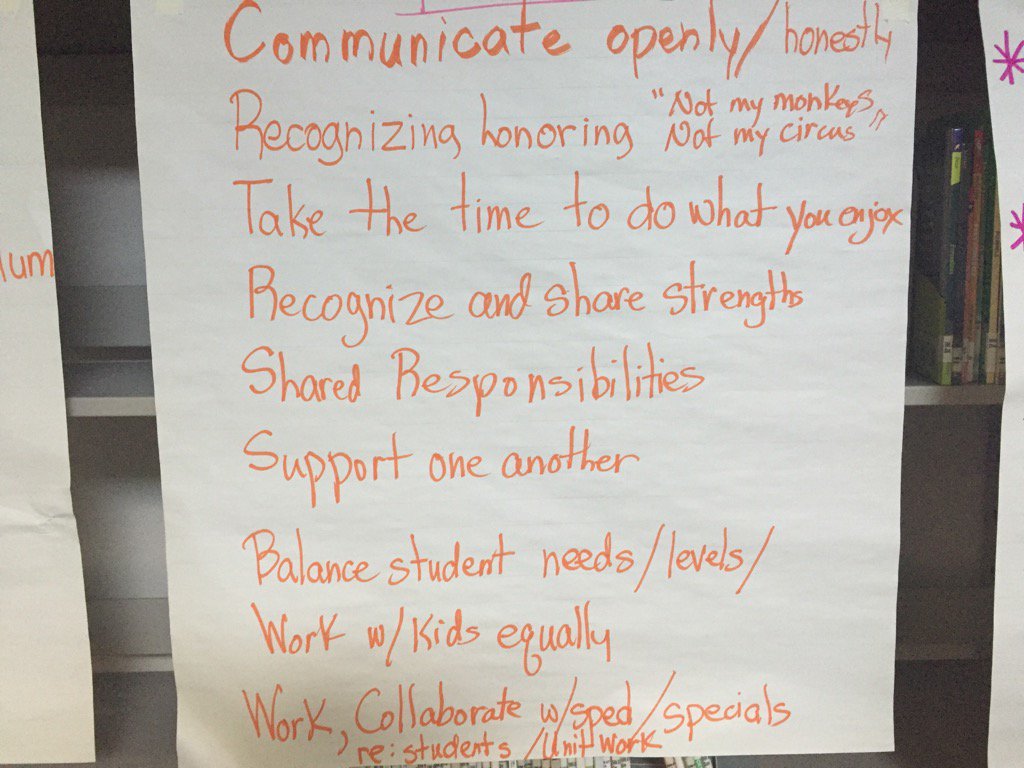 Communicate openly/honestly
Recognizing, honoring "Not my monkeys,
Not my circus"
Take the time to do what you enjoy
Recognize and share strengths
Shared Responsibilities
Support one another
Balance student needs/levels/
Work w/kids equally
Work, Collaborate w/sped/specials
re: students/Unit work
lum
*
*